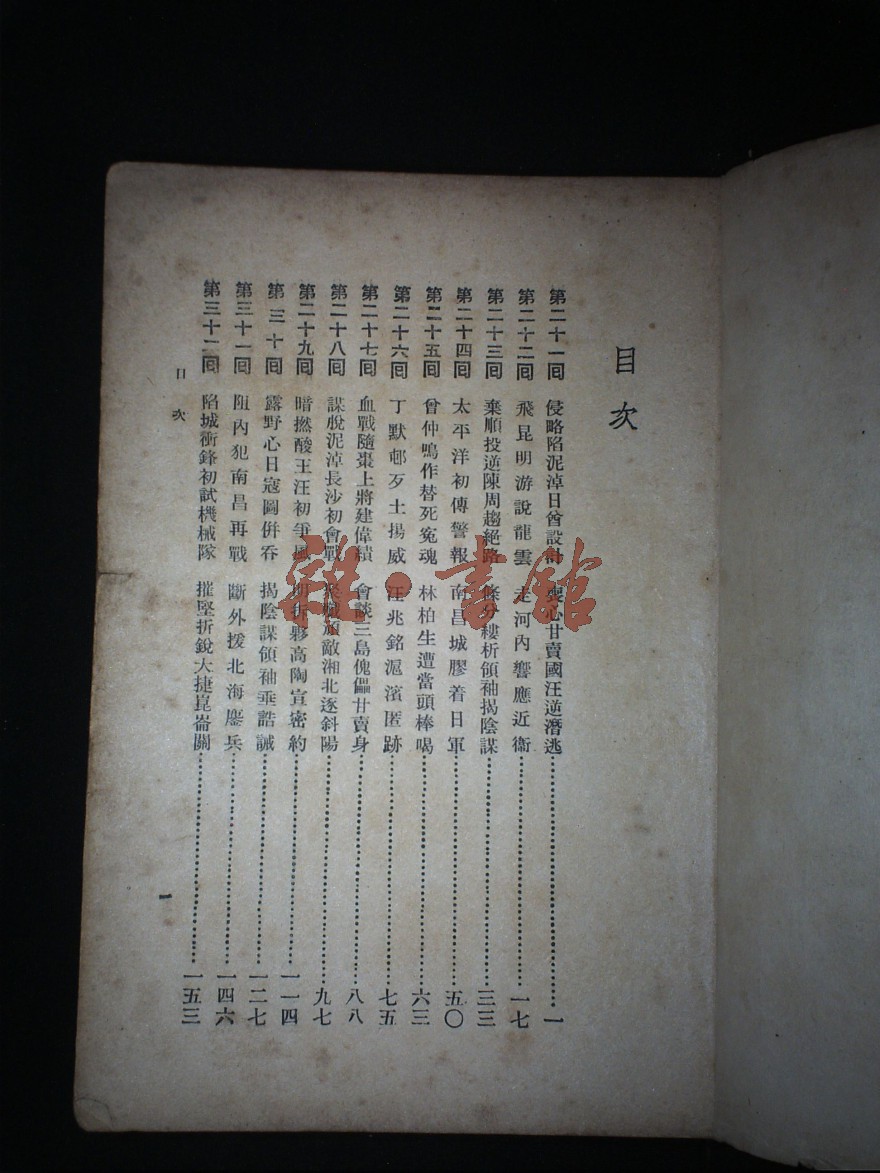 目次
第二十一回 侵略陷泥淖日酋設計 喪心甘賣國汪逆潛逃 一
第二十二回 飛昆明游說龍雲 走河內響應近衞 一七
第二十三回 棄順投逆陳周趨絕路 條分縷析領袖揭陰謀 三三
第二十四回 太平洋初傳警報 南昌城膠着日軍 五〇
第二十五回 曾仲鳴作替死冤魂 林柏生遭當頭棒喝 六三
第二十六回 丁默邨歹土揚威 汪兆銘滬濱匿跡 七五
第二十七回 血戰隨棗上將建偉績 會談三島傀儡甘賣身 八八
第二十八回 謀脫泥淖長沙初會戰 頑敵湘北逐斜陽 九七
第二十九回 暗撚酸王汪初爭風 明拆夥高陶宣密約 一一四
第三十回 露野心日寇圖併吞 揭陰謀領袖垂誥誡 一二七
第三十一回 阻內犯南昌再戰 斷外援北海鏖兵 一四六
第三十二回 陷城衝鋒初試機械隊 摧堅折銳大捷崑崙關 一五三
目次
一
雜·書館